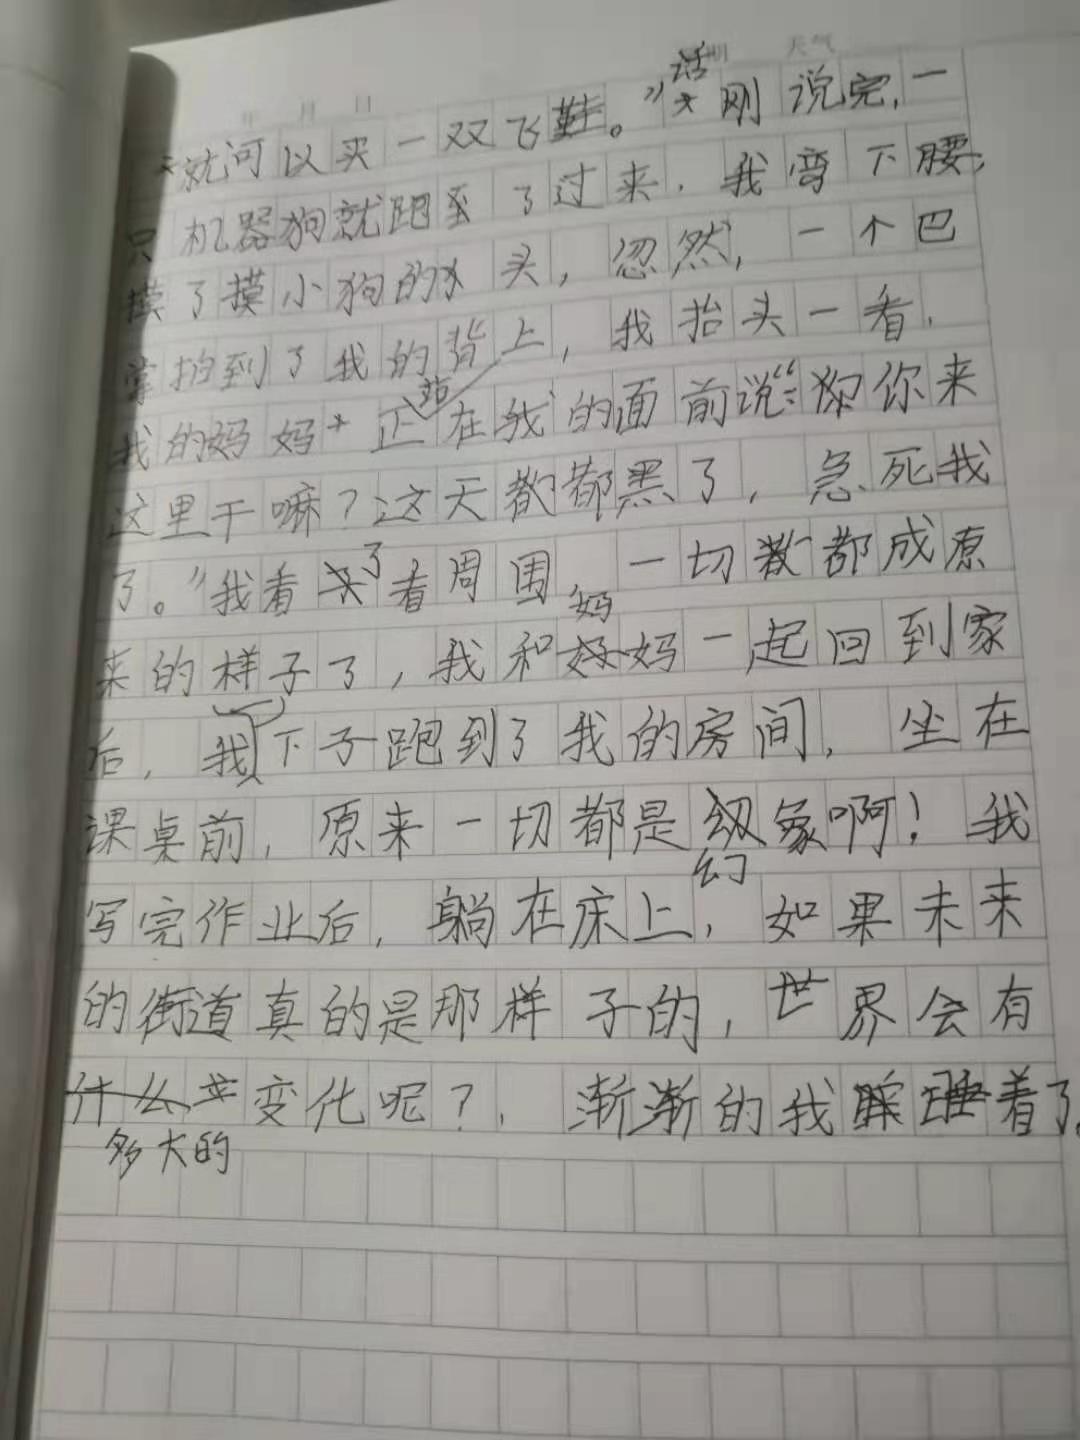 年 月 日 期 天气
就可以买一双飞鞋。”话刚说完,一
只机器狗就跑了过来,我弯下腰,
摸了摸小狗的头,忽然,一个巴
掌拍到了我的背上,我抬头一看,
我的妈妈正站在我的面前说:“你来
这里干嘛?这天都黑了,急死我
了。”我看了看周围,一切都成原
来的样子了,我和妈妈一起回到家
后,我下子跑到了我的房间,坐在
课桌前,原来一切都是幻象啊!我
写完作业后,躺在床上,如果未来
的街道真的是那样子的,世界会有
多大的变化呢?,渐渐的我睡着了。